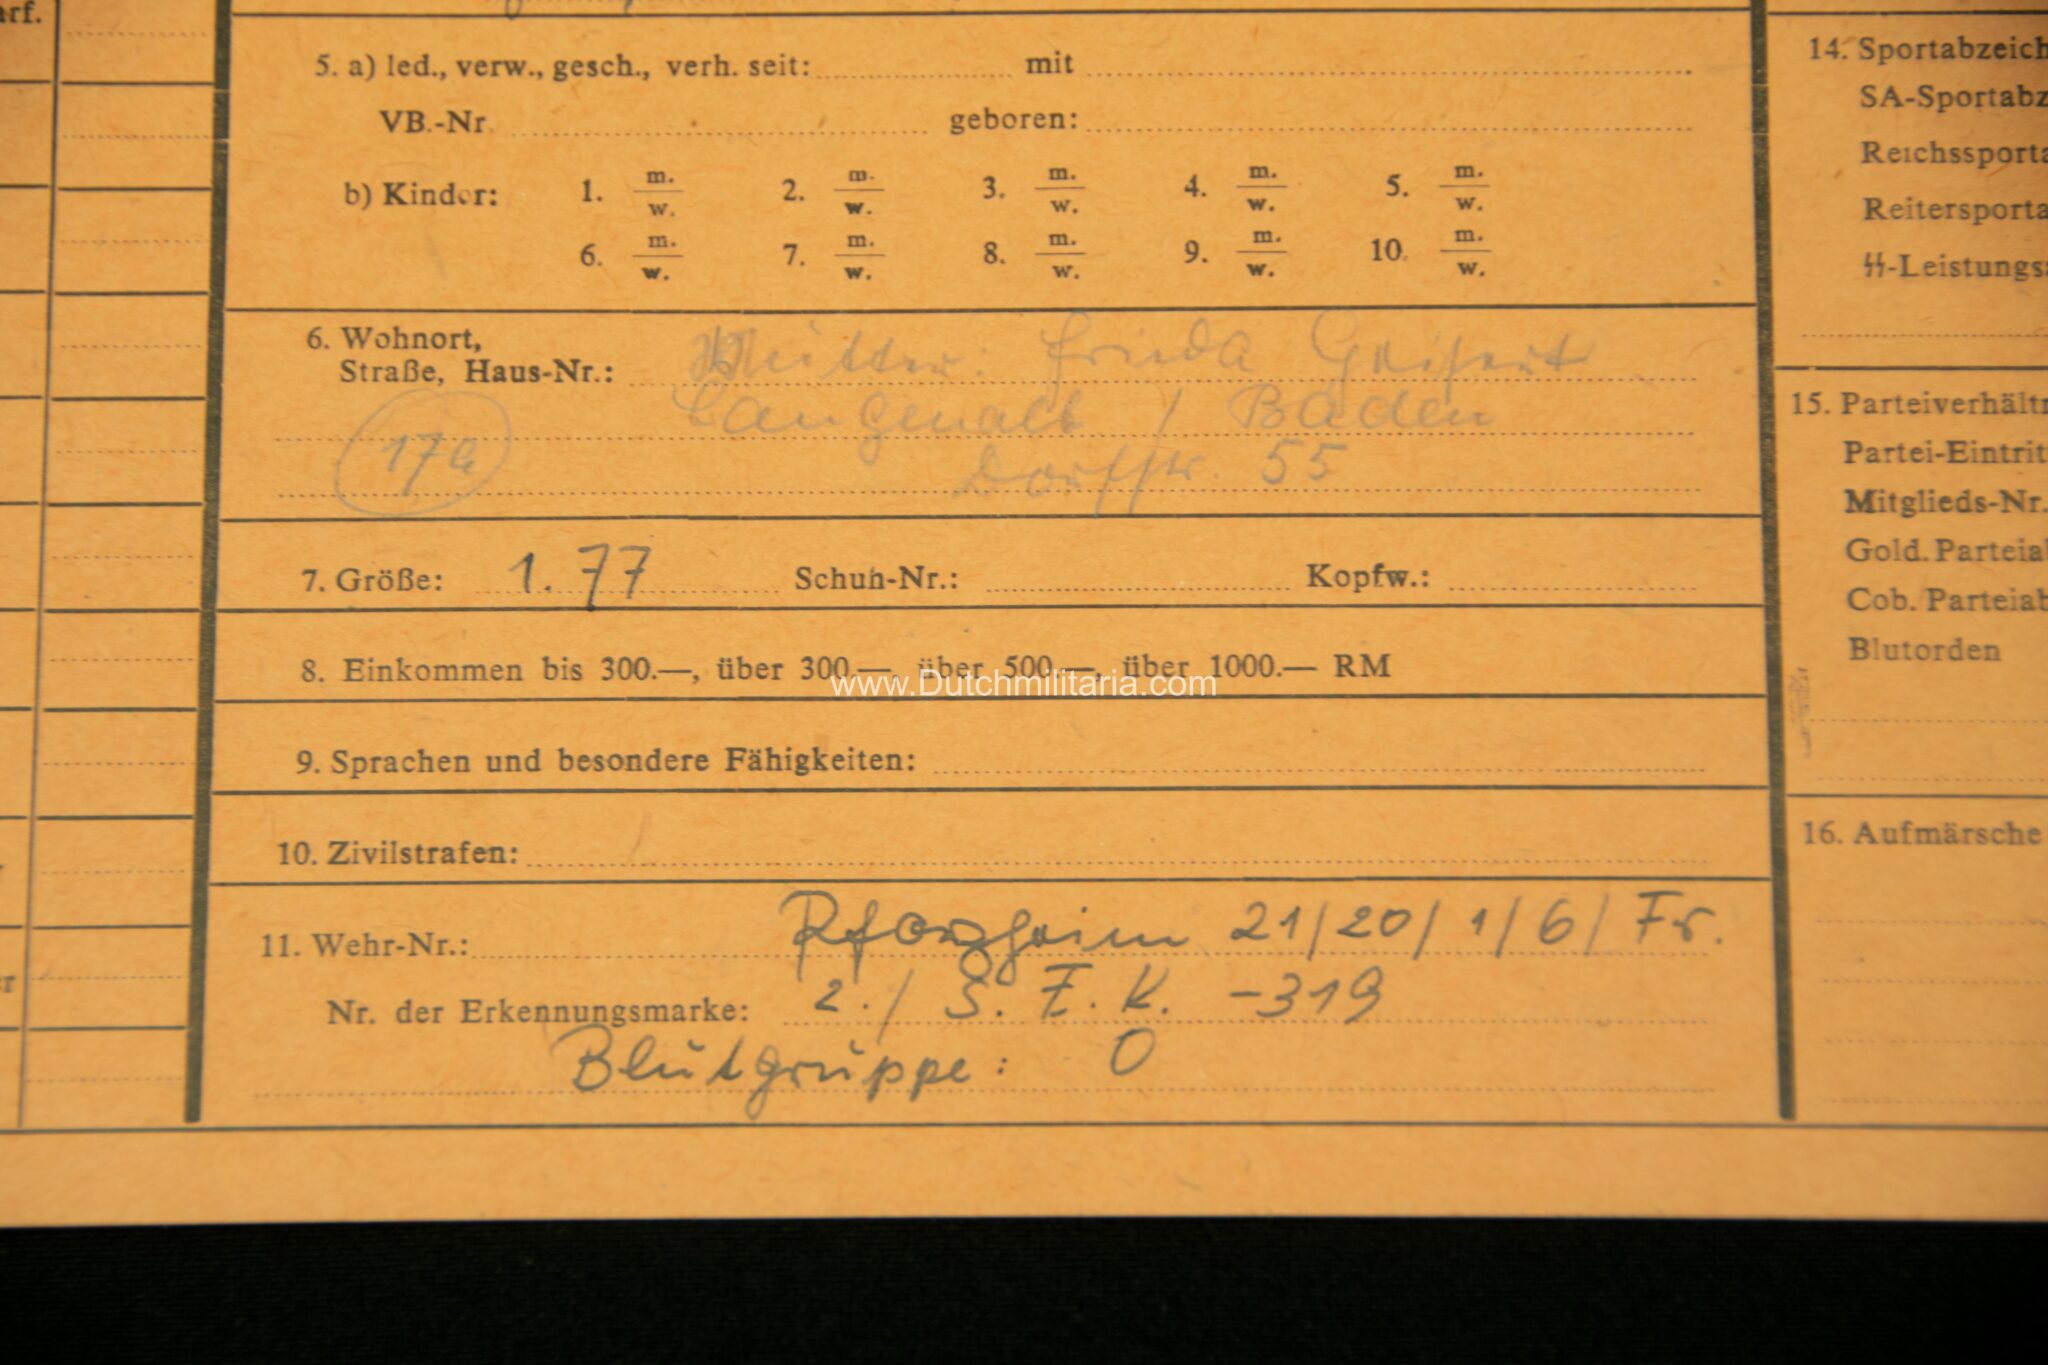 arf.
5. a) led., verw., gesch., verh. seit: mit
VB.-Nr. geboren:
b) Kinder: 1. m. w. 2. m. w. 3. m. w. 4. m. w. 5. m. w.
6. m. w. 7. m. w. 8. m. w. 9. m. w. 10. m. w.
6. Wohnort,
Straße, Haus-Nr.: Mutter: Frieda
Langenalb / Baden
17a Dorfstr. 55
7. Größe: 1.77 Schuh-Nr.: Kopfw.:
8. Einkommen bis 300.—, über 300.—, über 500.—, über 1000.— RM
www.Dutchmilitaria.com
9. Sprachen und besondere Fähigkeiten:
10. Zivilstrafen:
11. Wehr-Nr.: Pforzheim 21/20/1/6/Fr.
Nr. der Erkennungsmarke: 2./ S. F. K. -319
Blutgruppe: O
14. Sportabzeich
SA-Sportabz
Reichssporta
Reitersporta
ᛋᛋ-Leistungs
15. Parteiverhältn
Partei-Eintritt
Mitglieds-Nr.
Gold. Parteiab
Cob. Parteiab
Blutorden
16. Aufmärsche